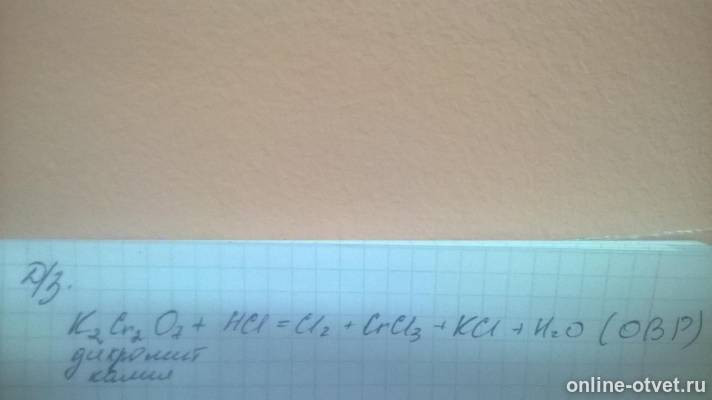 Д/з.
K₂Cr₂O₇ + HCl = Cl₂ + CrCl₃ + KCl + H₂O (ОВР)
дихромат
калия
online-otvet.ru